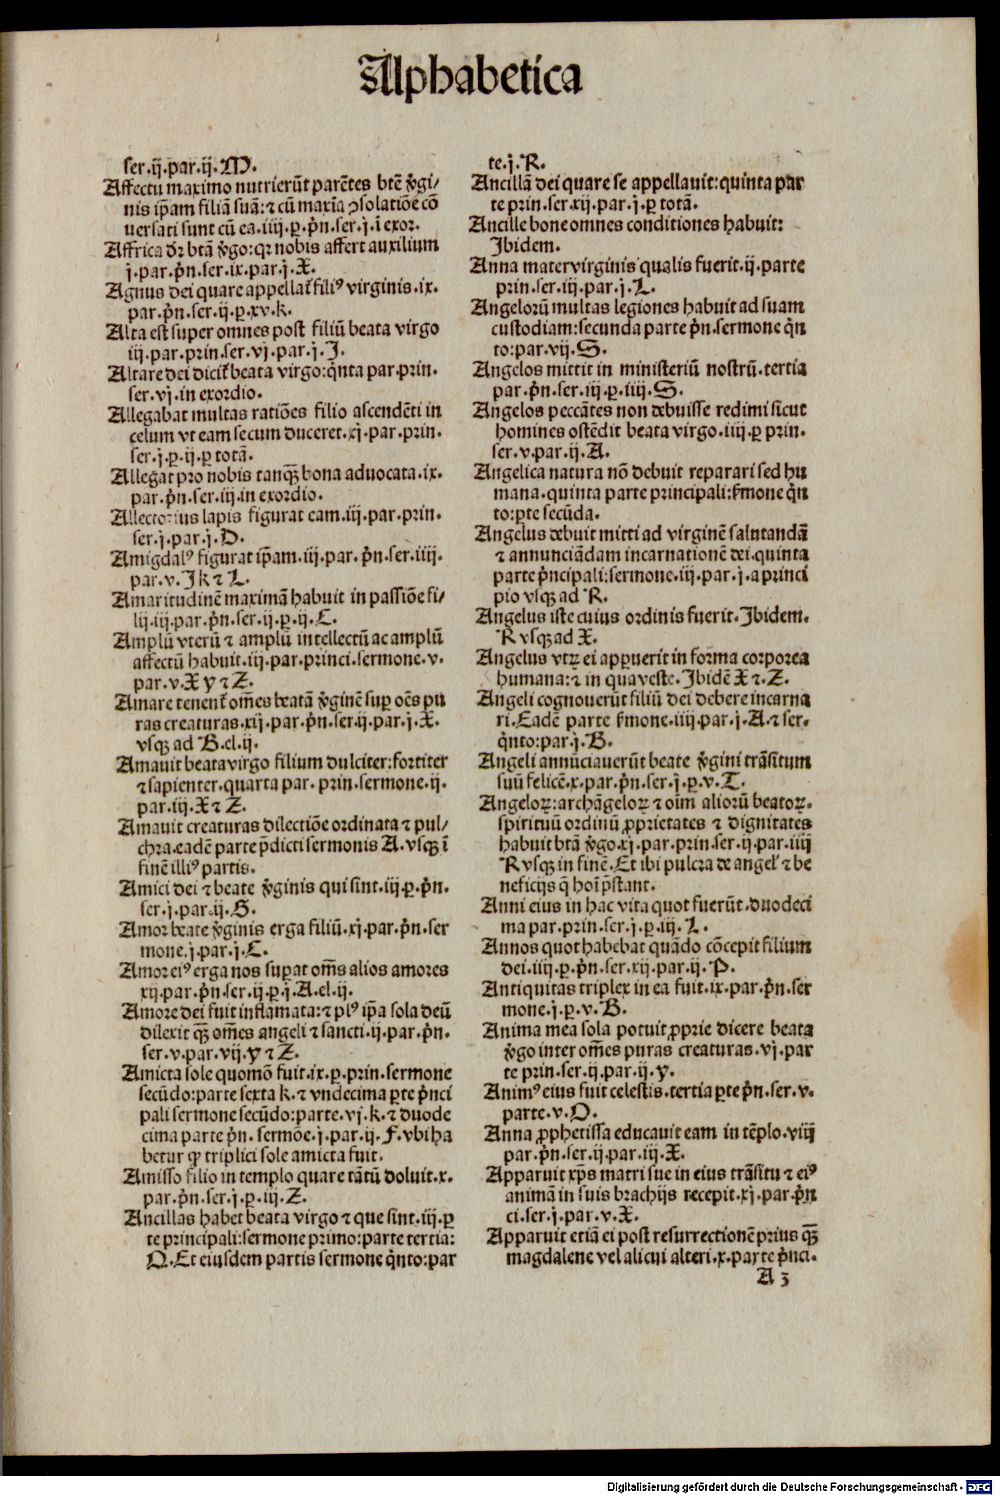 Alphabetica
ser.ij.par.ij.M.
Affectu maximo nutrierūt parētes btē ꝟgi/
nis ip̄am filiā suā:⁊ cū maxīa ↄsolatiōe cō
versati sunt cū ea.iiij.ꝑ.pⁱn.ser.j.ī exor.
Affrica dr̄ btā ꝟgo:qꝛ nobis affert auxilium
j.par.pⁱn.ser.ix.par.j.X.
Agnus dei quare appellat᷑ filiꝰ virginis.ix.
par.pⁱn.ser.ij.ꝑ.xv.k.
Alta est super omnes post filiū beata virgo
iij.par.prin.ser.vj.par.j.J.
Altare dei dicit᷑ beata virgo:qⁱnta par.prin.
ser.vj.in exordio.
Allegabat multas ratiōes filio ascendēti in
celum vt eam secum duceret.xj.par.prin.
ser.j.ꝑ.ij.ꝑ totā.
Allegat pro nobis tanqꝫ̄ bona aduocata.ix.
par.pⁱn.ser.iij.in exordio.
Allectorius lapis figurat eam.iij.par.prin.
ser.j.par.j.D.
Amigdalꝰ figurat ip̄am.iij.par.pⁱn.ser.iiij.
par.v.J k ⁊ L.
Amaritudinē maximā habuit in passiōe fi/
lij.iij.par.pⁱn.ser.ij.ꝑ.ij.C.
Amplū vterū ⁊ amplū intellectū ac amplū
affectū habuit.iij.par.princi.sermone.v.
par.v.X y ⁊ Z.
Amare tenent᷑ om̄es beatā ꝟginē suꝑ oēs pu
ras creaturas.xij.par.pⁱn.ser.ij.par.j.X.
vsqꝫ ad B.el.ij.
Amauit beata virgo filium dulciter:fortiter
⁊ sapienter.quarta par.prin.sermone.ij.
par.iij.X ⁊ Z.
Amauit creaturas dilectiōe ordinata ⁊ pul/
chra.eadē parte p̄dicti sermonis A.vsqꝫ ī
finē illiꝰ partis.
Amici dei ⁊ beate ꝟginis qui sint.iij.ꝑ.pⁱn.
ser.j.par.ij.S.
Amor beate ꝟginis erga filiū.xj.par.pⁱn.ser
mone.j.par.j.C.
Amor eiꝰ erga nos suꝑat om̄s alios amores
xij.par.pⁱn.ser.ij.ꝑ.j.A.el.ij.
Amore dei fuit inflamata:⁊ plꝰ ip̄a sola deū
dilexit qꝫ̄ om̄es angeli ⁊ sancti.ij.par.pⁱn.
ser.v.par.vij.y ⁊ Z.
Amicta sole quomō fuit.ix.ꝑ.prin.sermone
secūdo:parte sexta k.⁊ vndecima ꝑte pⁱnci
pali sermone secūdo:parte.vj.k.⁊ duode
cima parte pⁱn.sermōe.j.par.ij.F.vbi ha
betur ꝙ triplici sole amicta fuit.
Amisso filio in templo quare tātū doluit.x.
par.pⁱn.ser.j.ꝑ.iij.Z.
Ancillas habet beata virgo ⁊ que sint.iij.ꝑ
te principali:sermone primo:parte tertia:
Q.Et eiusdem partis sermone qⁱnto:par
te.j.R.
Ancillā dei quare se appellauit:quinta par
te prin.ser.xij.par.j.ꝑ totā.
Ancille bone omnes conditiones habuit:
Ibidem.
Anna mater virginis qualis fuerit.ij.parte
prin.ser.iij.par.j.L.
Angelorū multas legiones habuit ad suam
custodiam:secunda parte pⁱn.sermone qⁱn
to:par.vij.S.
Angelos mittit in ministeriū nostrū.tertia
par.pⁱn.ser.iij.ꝑ.iiij.S.
Angelos peccātes non debuisse redimi sicut
homines ostēdit beata virgo.iiij.ꝑ prin.
ser.v.par.ij.A.
Angelica natura nō debuit reparari sed hu
mana.quinta parte principali:ẜmone qⁱn
to:ꝑte secūda.
Angelus debuit mitti ad virginē salutandā
⁊ annunciādam incarnationē dei.quinta
parte pⁱncipali:sermone.iij.par.j.a princi
pio vsqꝫ ad R.
Angelus iste cuius ordinis fuerit.Ibidem.
R vsqꝫ ad X.
Angelus vtꝝ ei apꝑuerit in forma corporea
humana:⁊ in qua veste.Ibidē X ⁊.Z.
Angeli cognouerūt filiū dei debere incarna
ri.Eadē parte ẜmone.iiij.par.j.A.⁊ ser.
qⁱnto:par.j.B.
Angeli annūciauerūt beate ꝟgini trāsitum
suū felicē.x.par.pⁱn.ser.j.ꝑ.v.T.
Angeloꝝ:archāgeloꝝ ⁊ oīm aliorū beatoꝝ.
spirituū ordinū ꝓprietates ⁊ dignitates
habuit btā ꝟgo.xj.par.prin.ser.ij.par.iiij
R vsqꝫ in finē.Et ibi pulcra de angel᷑ ⁊ be
neficijs q̄ hoī p̄stant.
Anni eius in hac vita quot fuerūt.duodeci
ma par.prin.ser.j.ꝑ.iij.L.
Annos quot habebat quādo cōcepit filium
dei.iiij.ꝑ.pⁱn.ser.xij.par.ij.P.
Antiquitas triplex in ea fuit.ix.par.pⁱn.ser
mone.j.ꝑ.v.B.
Anima mea sola potuit ꝓprie dicere beata
ꝟgo inter om̄es puras creaturas.vj.par
te prin.ser.ij.par.ij.y.
Animꝰ eius fuit celestis.tertia ꝑte pⁱn.ser.v.
parte.v.O.
Anna ꝓphetissa educauit eam in tēplo.viij
par.pⁱn.ser.ij.par.iij.X.
Apparuit xp̄s matri sue in eius trāsitu ⁊ eiꝰ
animā in suis brachijs recepit.xj.par.pⁱn
ci.ser.j.par.v.X.
Apparuit etiā ei post resurrectionē prius qꝫ̄
magdalene vel alicui alteri.x.parte pⁱnci.
A 3
Digitalisierung gefördert durch die Deutsche Forschungsgemeinschaft - DFG